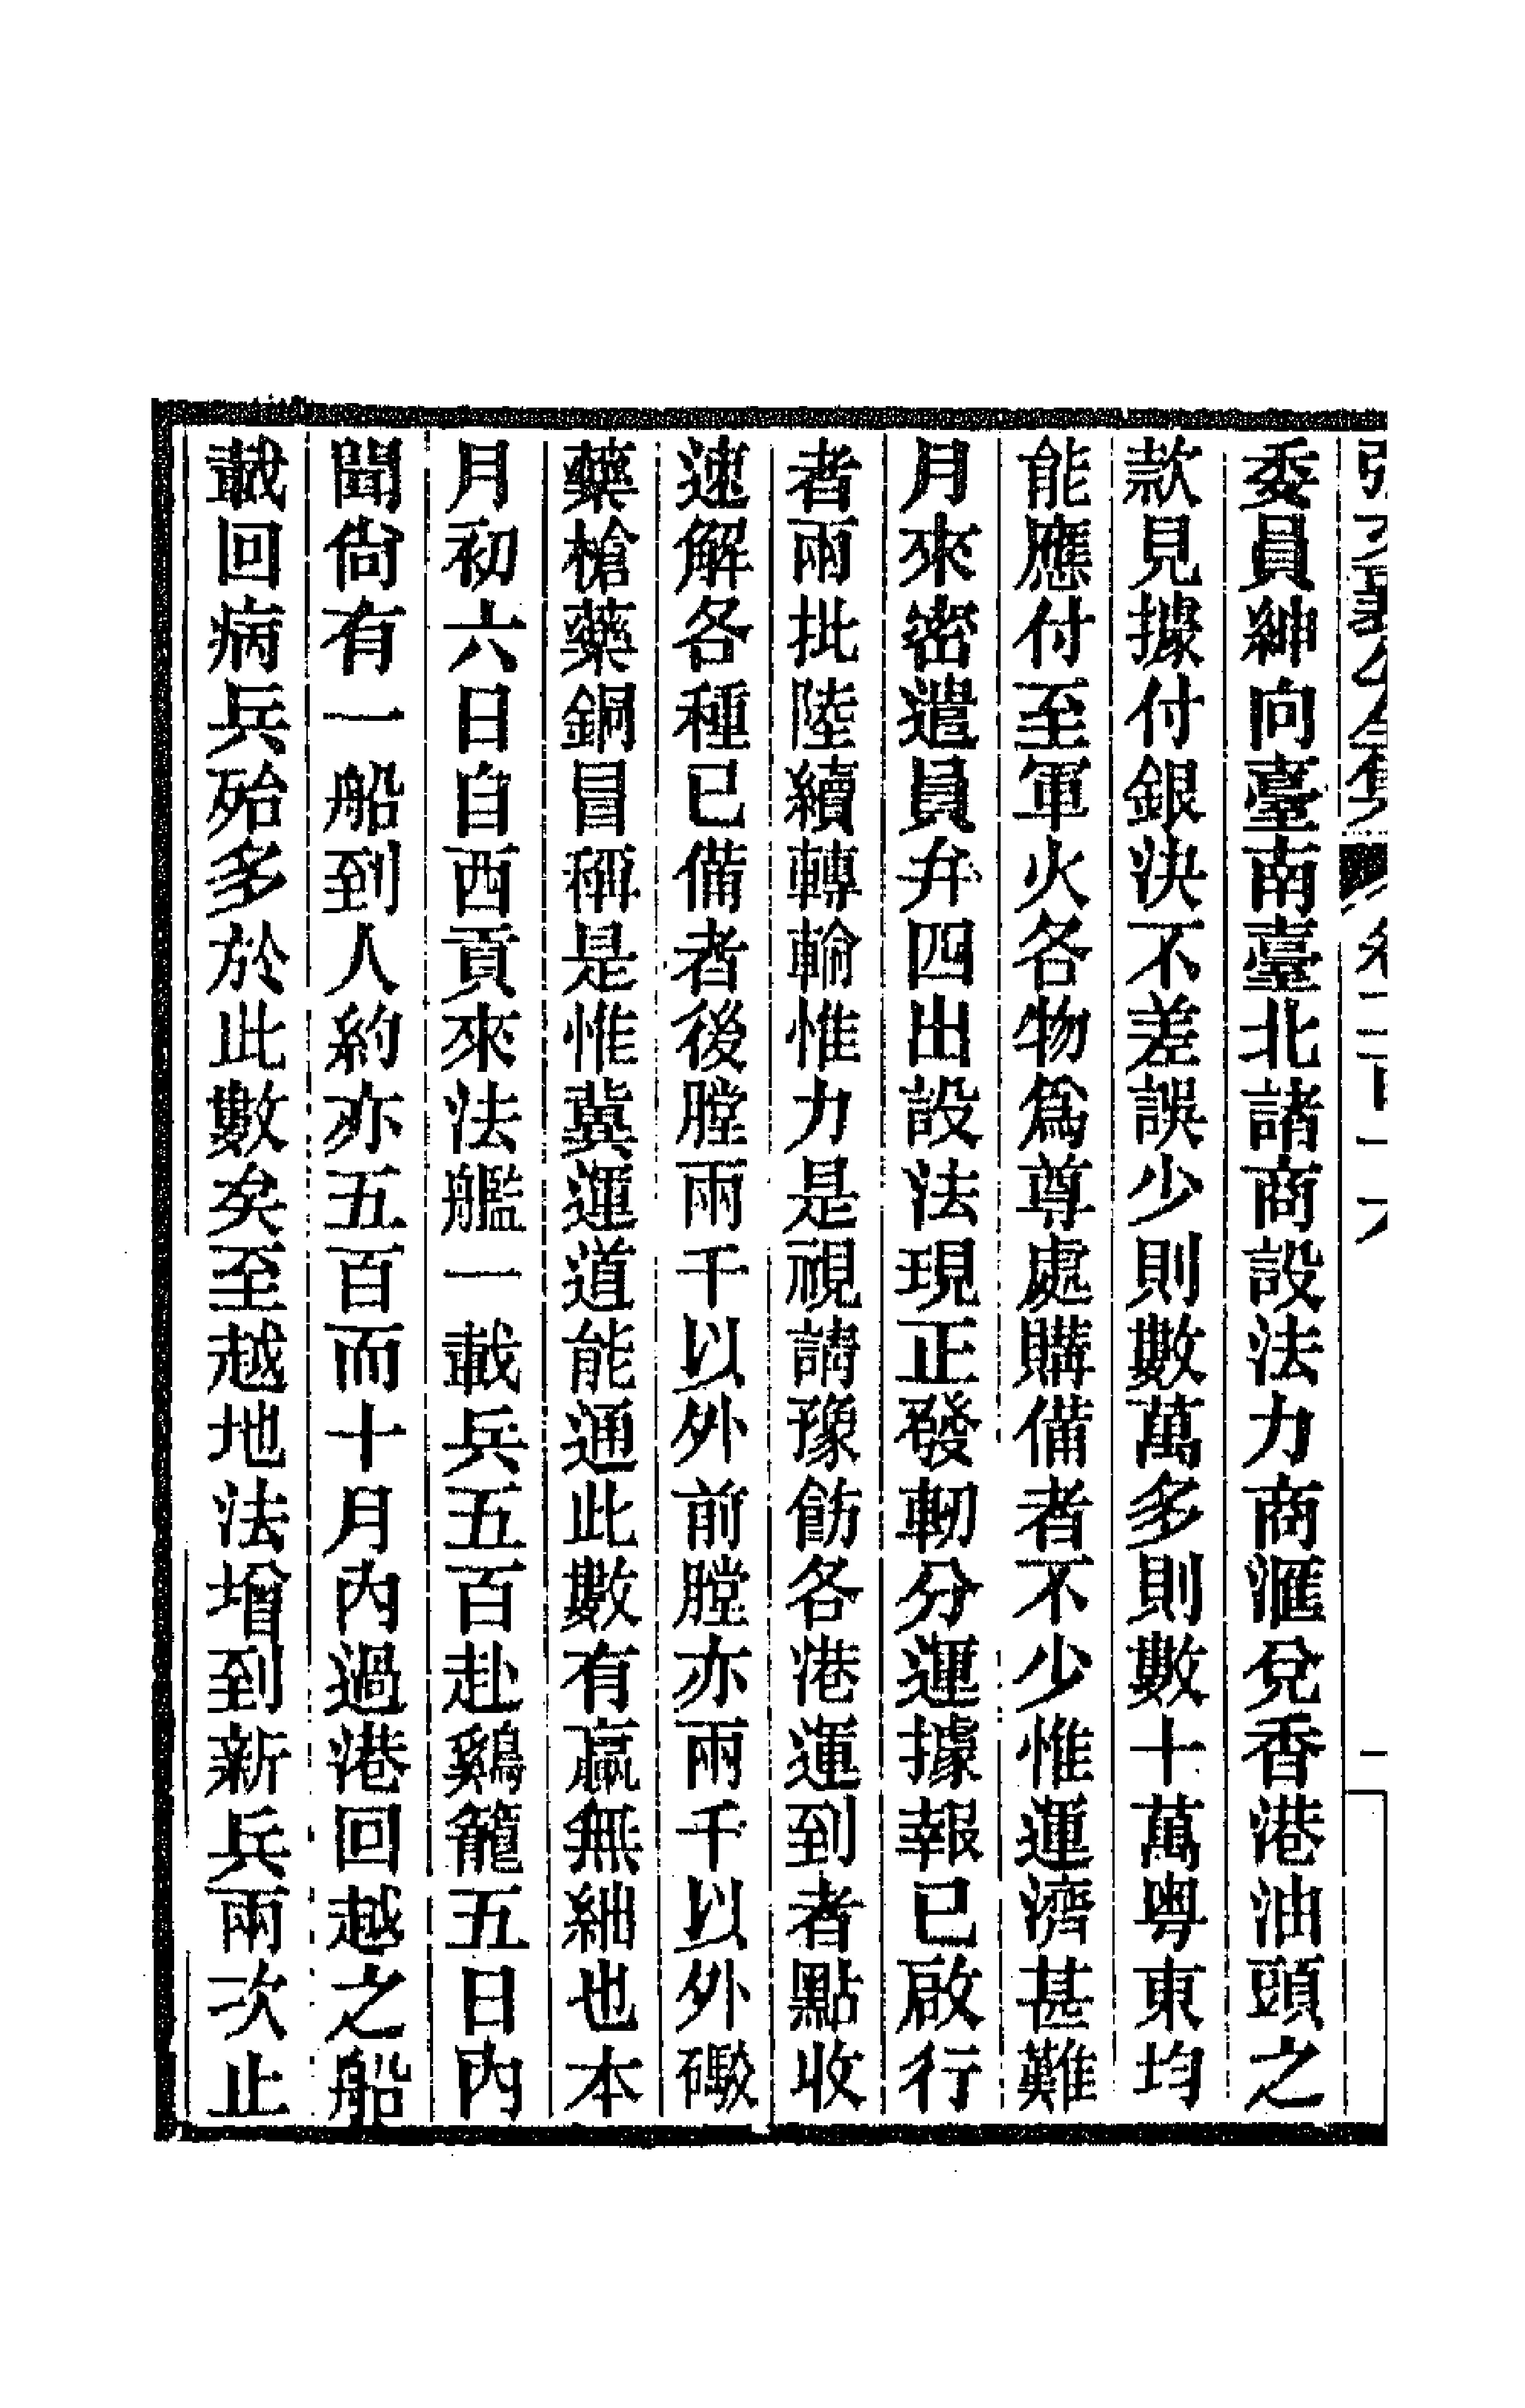 委員紳向臺南臺北諸商設法力商滙兌香港油頭之
款見據付銀決不差誤少則數萬多則數十萬粤東均
能應付至軍火各物爲尊處購備者不少惟運濟甚難
月來密遣員弁四出設法現正發軔分運據報已啟行
者兩批陸續轉輸惟力是視請豫飭各港運到者點收
速解各種已備者後膛兩千以外前膛亦兩千以外礮
藥槍藥銅冒稱是惟冀運道能通此數有贏無絀也本
月初六日自西貢來法艦一載兵五百赴鷄籠五日內
聞尙有一船到人約亦五百而十月內過港回越之船
載回病兵殆多於此數矣至越地法增到新兵兩次止